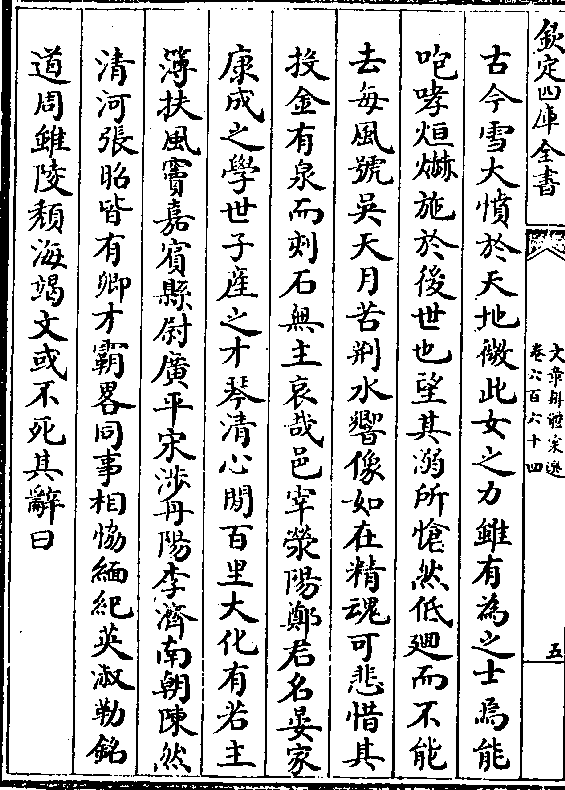 欽定四庫全書
文章辨體彙選
卷六百六十四
五
古今雪大憤於天地微此女之力雖有為之士焉能
咆哮烜爀施於後世也望其溺所愴然低廻而不能
去每風號吳天月苦荆水響像如在精魂可悲惜其
投金有泉而刻石無主哀哉邑宰滎陽鄭君名晏家
康成之學世子産之才琴清心閒百里大化有若主
簿扶風竇嘉賓縣尉廣平宋涉丹陽李濟南朝陳然
清河張昭皆有卿才霸畧同事相恊緬紀英淑勒銘
道周雖陵頽海竭文或不死其辭曰